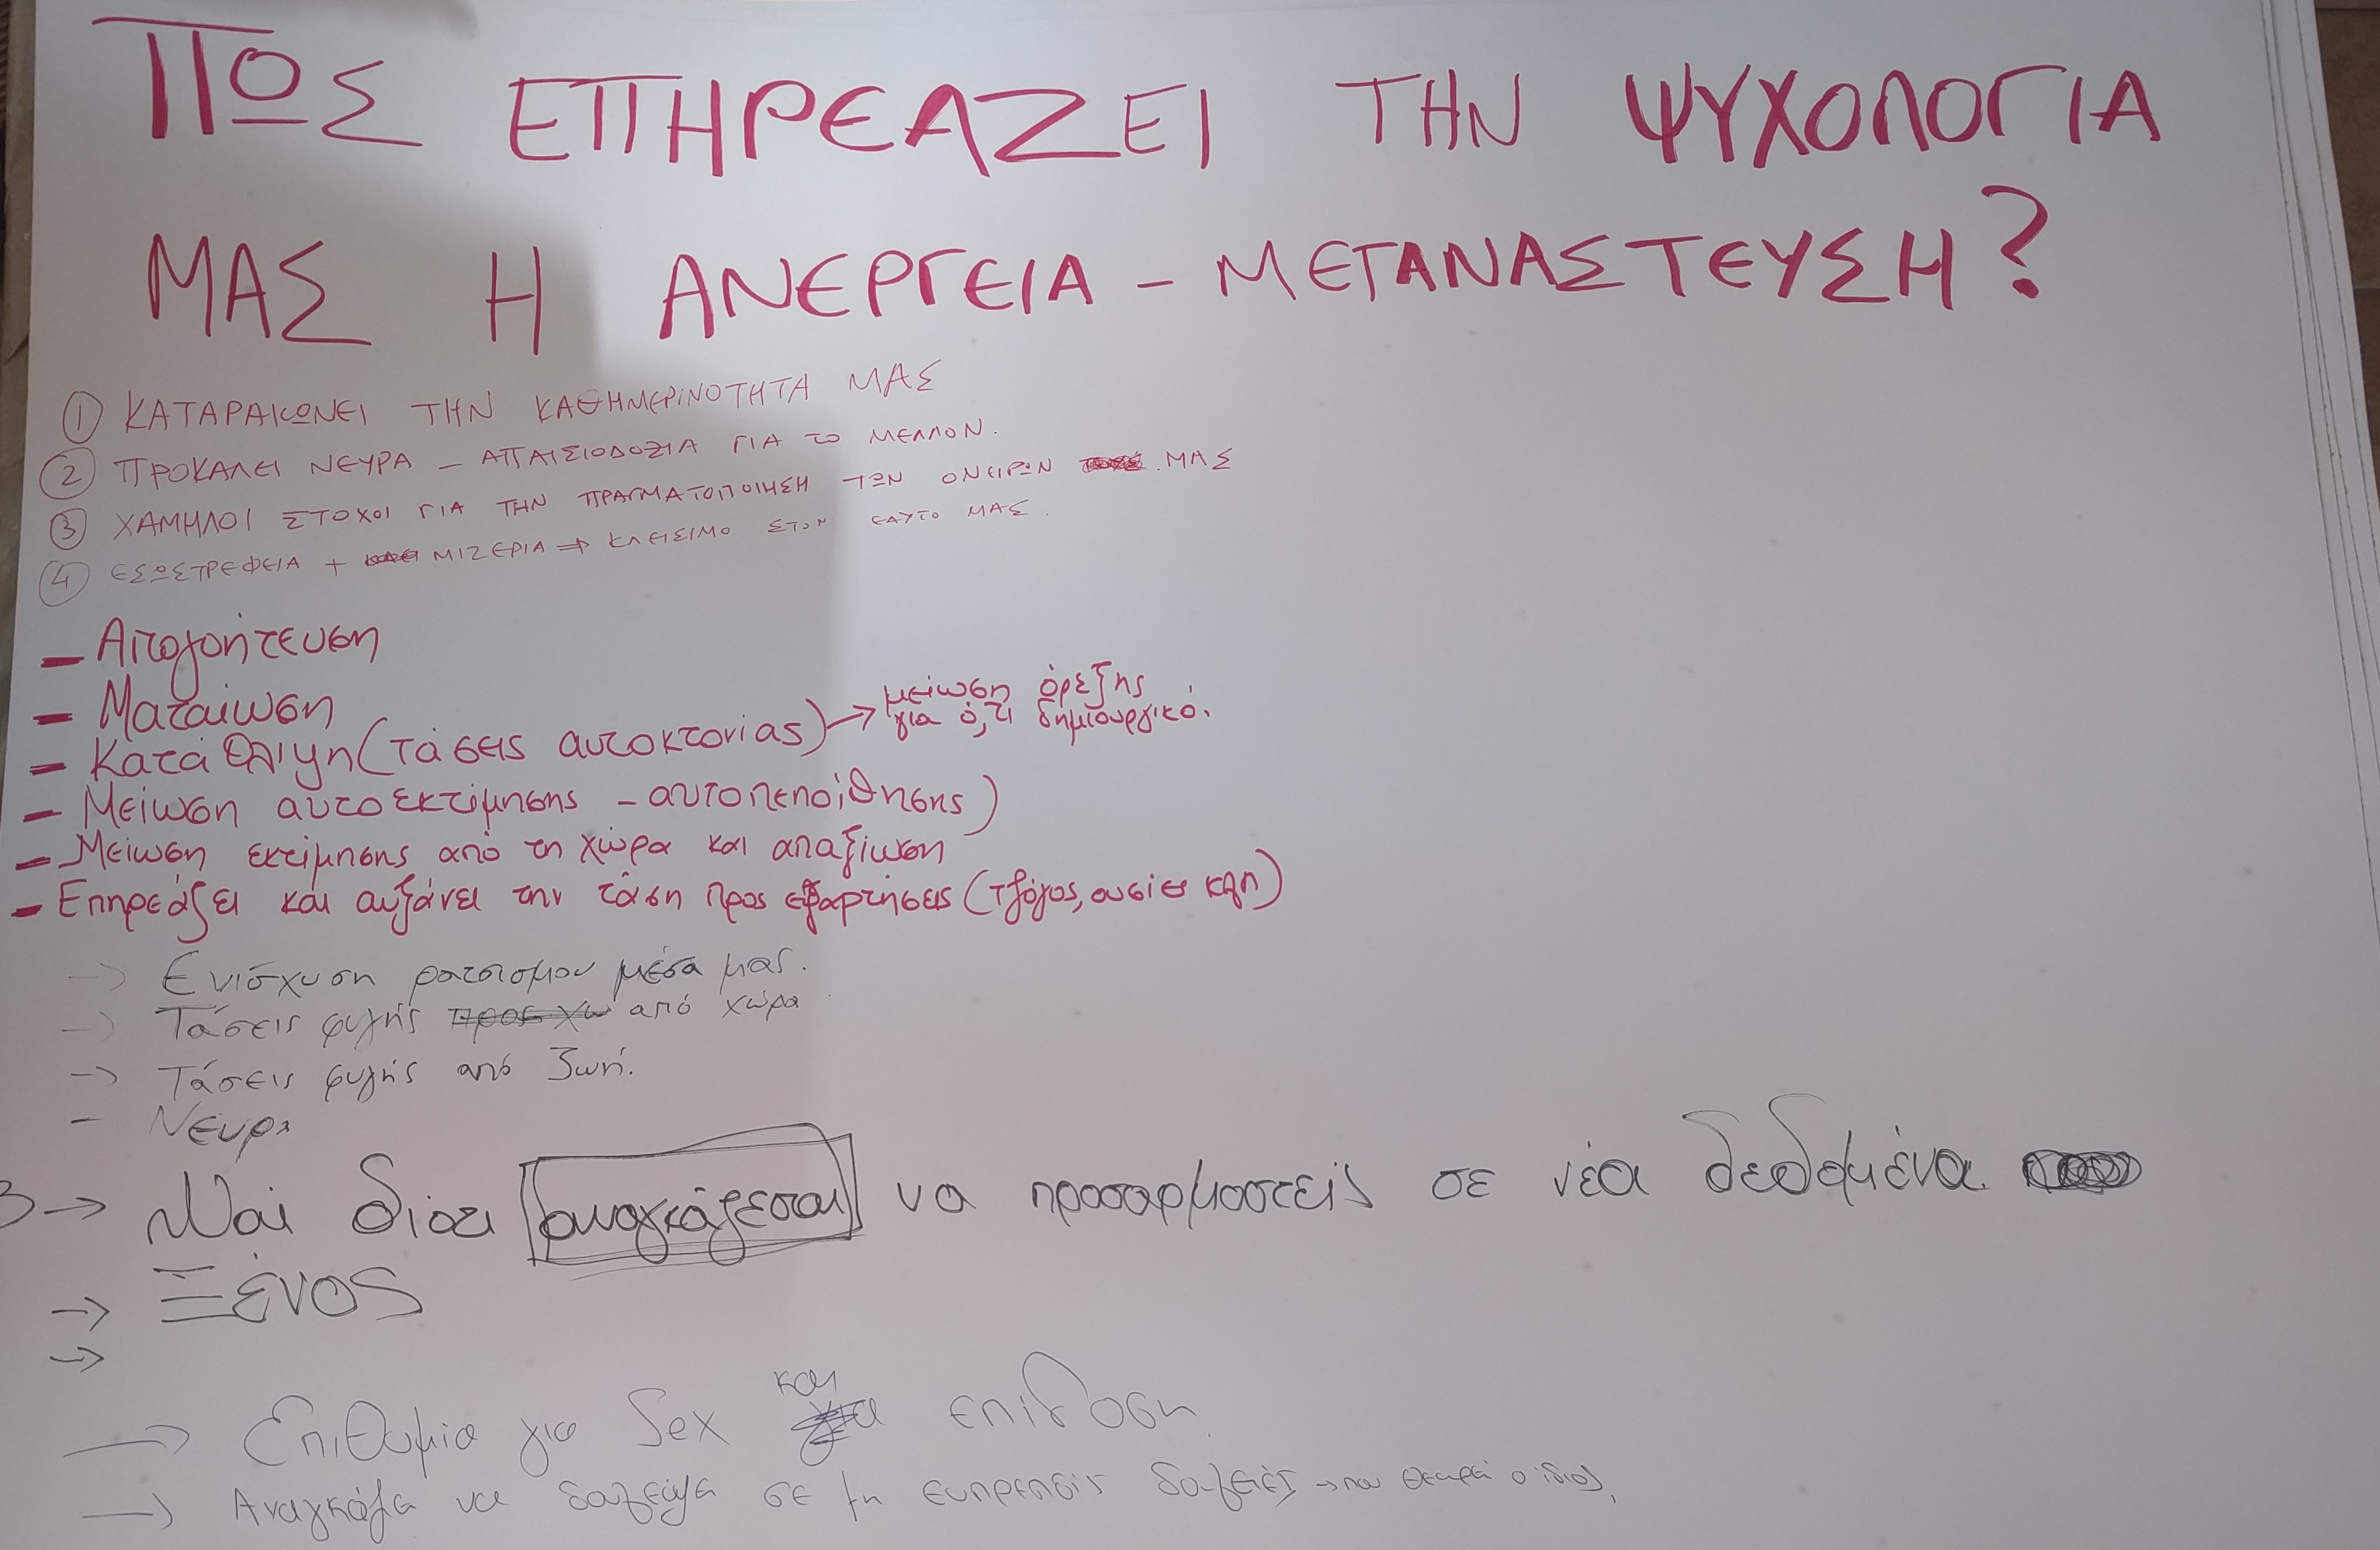 ΠΩΣ ΕΠΗΡΕΑΖΕΙ ΤΗΝ ΨΥΧΟΛΟΓΙΑ
ΜΑΣ Η ΑΝΕΡΓΕΙΑ - ΜΕΤΑΝΑΣΤΕΥΣΗ?
① ΚΑΤΑΡΑΚΩΝΕΙ ΤΗΝ ΚΑΘΗΜΕΡΙΝΟΤΗΤΑ ΜΑΣ
② ΠΡΟΚΑΛΕΙ ΝΕΥΡΑ - ΑΠΑΙΣΙΟΔΟΞΙΑ ΓΙΑ ΤΟ ΜΕΛΛΟΝ.
③ ΧΑΜΗΛΟΙ ΣΤΟΧΟΙ ΓΙΑ ΤΗΝ ΠΡΑΓΜΑΤΟΠΟΙΗΣΗ ΤΩΝ ΟΝΕΙΡΩΝ ΜΑΣ
④ ΕΣΩΣΤΡΕΦΕΙΑ + ΜΙΖΕΡΙΑ ⇒ ΚΛΕΙΣΙΜΟ ΣΤΟΝ ΕΑΥΤΟ ΜΑΣ.
- Απογοήτευση
- Ματαίωση
- Κατάθλιψη (τάσεις αυτοκτονίας) → μείωση όρεξης
για ό,τι δημιουργικό.
- Μείωση αυτοεκτίμησης - αυτοπεποίθησης)
- Μείωση εκτίμησης από τη χώρα και απαξίωση
- Επηρεάζει και αυξάνει την τάση προς εξαρτήσεις (τζόγος, ουσίες κλπ)
→ Ενίσχυση ρατσισμου μέσα μας.
→ Τάσεις φυγής από χώρα
→ Τάσεις φυγής από ζωή.
- Νευρα
→ Ναι διοτι αναγκάζεσαι να προσαρμοστείς σε νέα δεδομένα
→ Ξένος
→
→ Επιθυμια για Sex και επιδοση
→ να σε μη ευπρεπεις δουλειές → που θεωρεί ο ίδιος